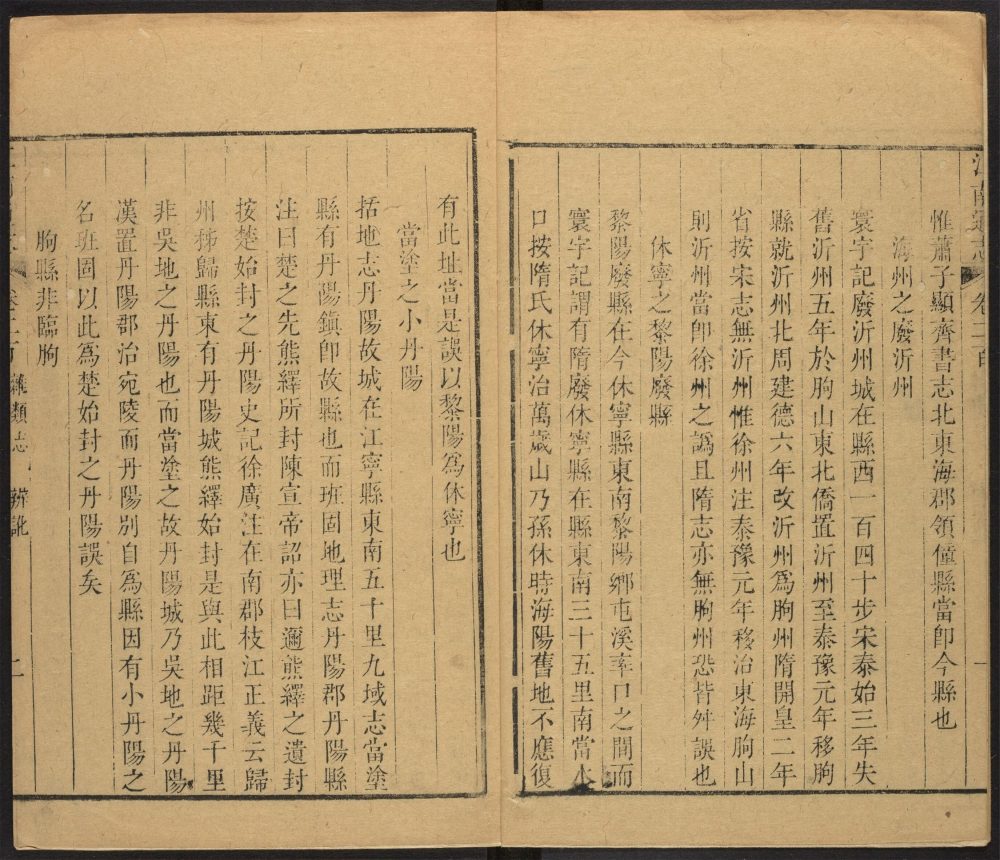 惟蕭子顯齊書志北東海郡領僮縣當卽今縣也
海州之廢沂州
寰宇記廢沂州城在縣西一百四十步宋泰始三年失
舊沂州五年於朐山東北僑置沂州至泰豫元年移朐
縣就沂州北周建德六年改沂州爲朐州隋開皇二年
省按宋志無沂州惟徐州注泰豫元年移治東海朐山
則沂州當卽徐州之譌且隋志亦無朐州恐皆舛誤也
休寧之黎陽廢縣
黎陽廢縣在今休寧縣東南黎陽鄉屯溪率口之間而
寰宇記謂有隋廢休寧縣在縣東南三十五里南當水
口按隋氏休寧治萬歲山乃孫休時海陽舊地不應復
有此址當是誤以黎陽爲休寧也
當塗之小丹陽
括地志丹陽故城在江寧縣東南五十里九域志當塗
縣有丹陽鎮卽故縣也而班固地理志丹陽郡丹陽縣
注曰楚之先熊繹所封陳宣帝詔亦曰邇熊繹之遺封
按楚始封之丹陽史記徐廣注在南郡枝江正義云歸
州秭歸縣東有丹陽城熊繹始封是與此相距幾千里
非吳地之丹陽也而當塗之故丹陽城乃吳地之丹陽
漢置丹陽郡治宛陵而丹陽別自爲縣因有小丹陽之
名班固以此爲楚始封之丹陽誤矣
朐縣非臨朐
雜類志 辨訛 二